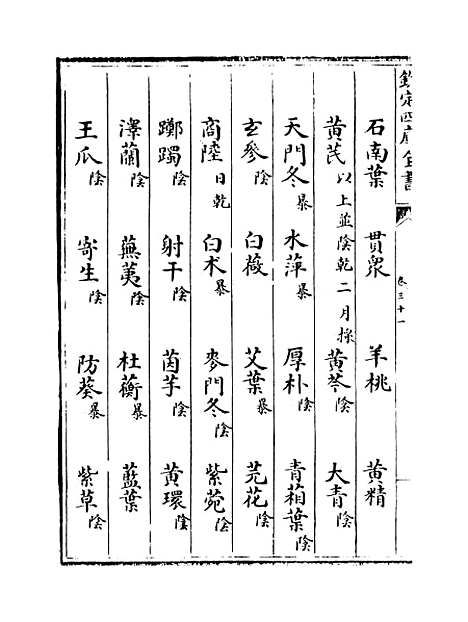 欽定四庫全書
卷三十一
石南葉 貫衆 羊桃 黄精
黄芪以上並陰乾二月採 黄芩陰 大青陰
天門冬暴 水萍暴 厚朴陰 青葙葉陰
玄參陰 白薇 艾葉暴 芫花陰
商陸日乾 白术暴 麥門冬陰 紫菀陰
躑躅陰 射干陰 茵芋陰 黄環陰
澤蘭陰 蕪荑陰 杜蘅暴 藍葉
王瓜陰 寄生陰 防葵暴 紫草陰